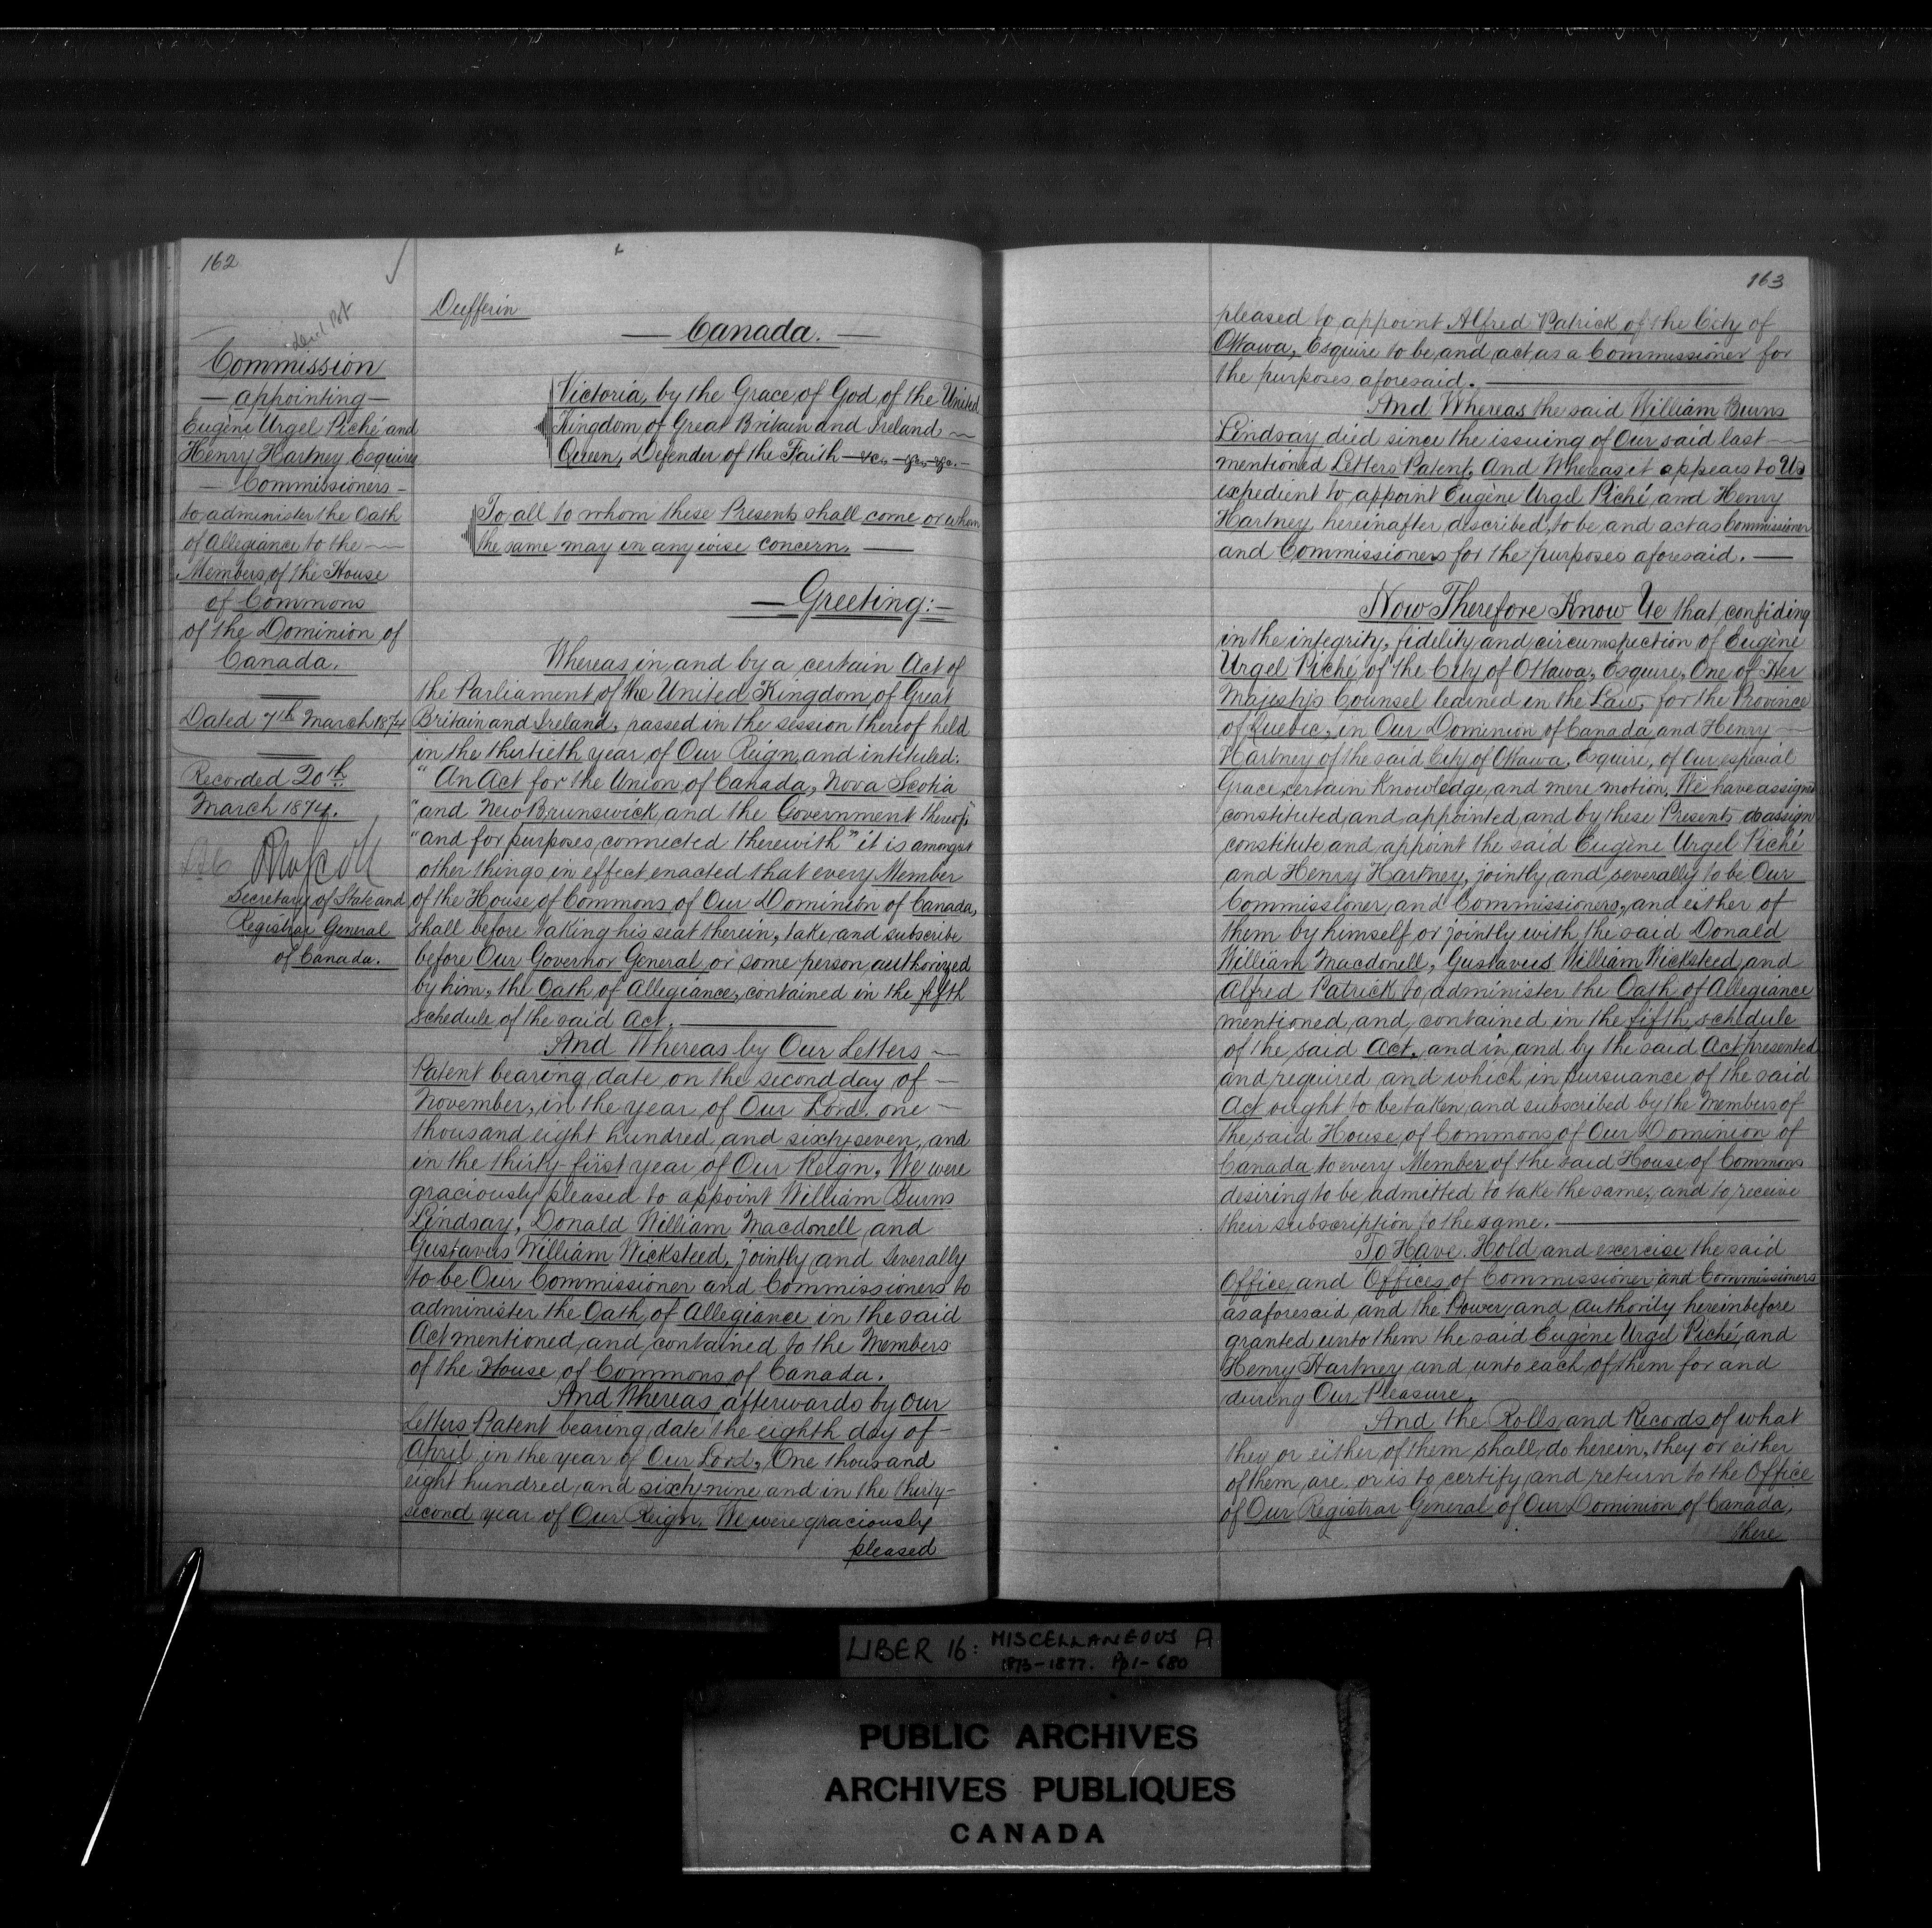 162
Commission
— appointing —
Eugène Urgel Piché and
Henry Hartney Esquires
— Commissioners —
to administer the Oath
of Allegiance to the —
Members of the House
of Commons
of the Dominion of
Canada.
Dated 7th March 1874
Recorded 20th
March 1874.
Secretary of State and
Registrar General
of Canada.
Dufferin
— Canada. —
Victoria, by the Grace of God of the United
Kingdom of Great Britain and Ireland
Queen, Defender of the Faith — &c. — &c. — &c. —
To all to whom these Presents shall come or whom
the same may in any wise concern. —
— Greeting: —
Whereas in and by a certain Act of
the Parliament of the United Kingdom of Great
Britain and Ireland, passed in the session thereof held
in the thirtieth year of Our Reign, and intituled:
" An Act for the Union of Canada, Nova Scotia
" and New Brunswick and the Government thereof,
" and for purposes connected therewith" it is amongst
other things in effect enacted that every Member
of the House of Commons of Our Dominion of Canada,
shall before taking his seat therein, take and subscribe
before Our Governor General or some person authorized
by him, the Oath of Allegiance, contained in the fifth
schedule of the said Act. —
And Whereas by Our Letters —
Patent bearing date on the second day of —
November, in the year of Our Lord one —
thousand eight hundred and sixty-seven, and
in the thirty-first year of Our Reign, We were
graciously pleased to appoint William Burns
Lindsay, Donald William Macdonell and
Gustavus William Wicksteed, jointly and severally
to be Our Commissioner and Commissioners to
administer the Oath of Allegiance in the said
Act mentioned and contained to the Members
of the House of Commons of Canada.
And Whereas afterwards by Our
Letters Patent bearing date the eighth day of —
April in the year of Our Lord, One thousand
eight hundred and sixty-nine and in the thirty-
second year of Our Reign. We were graciously
pleased
163
pleased to appoint Alfred Patrick of the City of
Ottawa, Esquire to be and act as a Commissioner for
the purposes aforesaid. —
And Whereas the said William Burns
Lindsay died since the issuing of Our said last —
mentioned Letters Patent, And Whereas it appears to Us
expedient to appoint Eugène Urgel Piché and Henry
Hartney hereinafter described, to be and act as Commissioner
and Commissioners for the purposes aforesaid. —
Now Therefore Know Ye that confiding
in the integrity, fidelity and circumspection of Eugène
Urgel Piché of the City of Ottawa, Esquire, One of Her
Majesty's Counsel learned in the Law, for the Province
of Quebec, in Our Dominion of Canada and Henry —
Hartney of the said City of Ottawa, Esquire, of Our especial
Grace, certain Knowledge, and mere motion, We have assigned
constituted and appointed and by these Presents do assign
constitute and appoint the said Eugène Urgel Piché
and Henry Hartney, jointly and severally to be Our
Commissioner and Commissioners, and either of
them by himself or jointly with the said Donald
William Macdonell, Gustavus William Wicksteed and
Alfred Patrick to administer the Oath of Allegiance
mentioned and contained in the fifth schedule
of the said Act, and in and by the said Act presented
and required and which in pursuance of the said
Act ought to be taken and subscribed by the Members of
the said House of Commons of Our Dominion of
Canada to every Member of the said House of Commons
desiring to be admitted to take the same, and to receive
their subscription to the same. —
To Have. Hold and exercise the said
Office and Offices of Commissioner and Commissioners
as aforesaid and the Power and authority hereinbefore
granted unto them the said Eugène Urgel Piché, and
Henry Hartney and unto each of them for and
during Our Pleasure.
And the Rolls and Records of what
they or either of them shall do herein, they or either
of them are or is to certify and return to the Office
of Our Registrar General of Our Dominion of Canada,
there
LIBER 16: MISCELLANEOUS A
1873-1877. Pp 1-680
PUBLIC ARCHIVES
ARCHIVES PUBLIQUES
CANADA